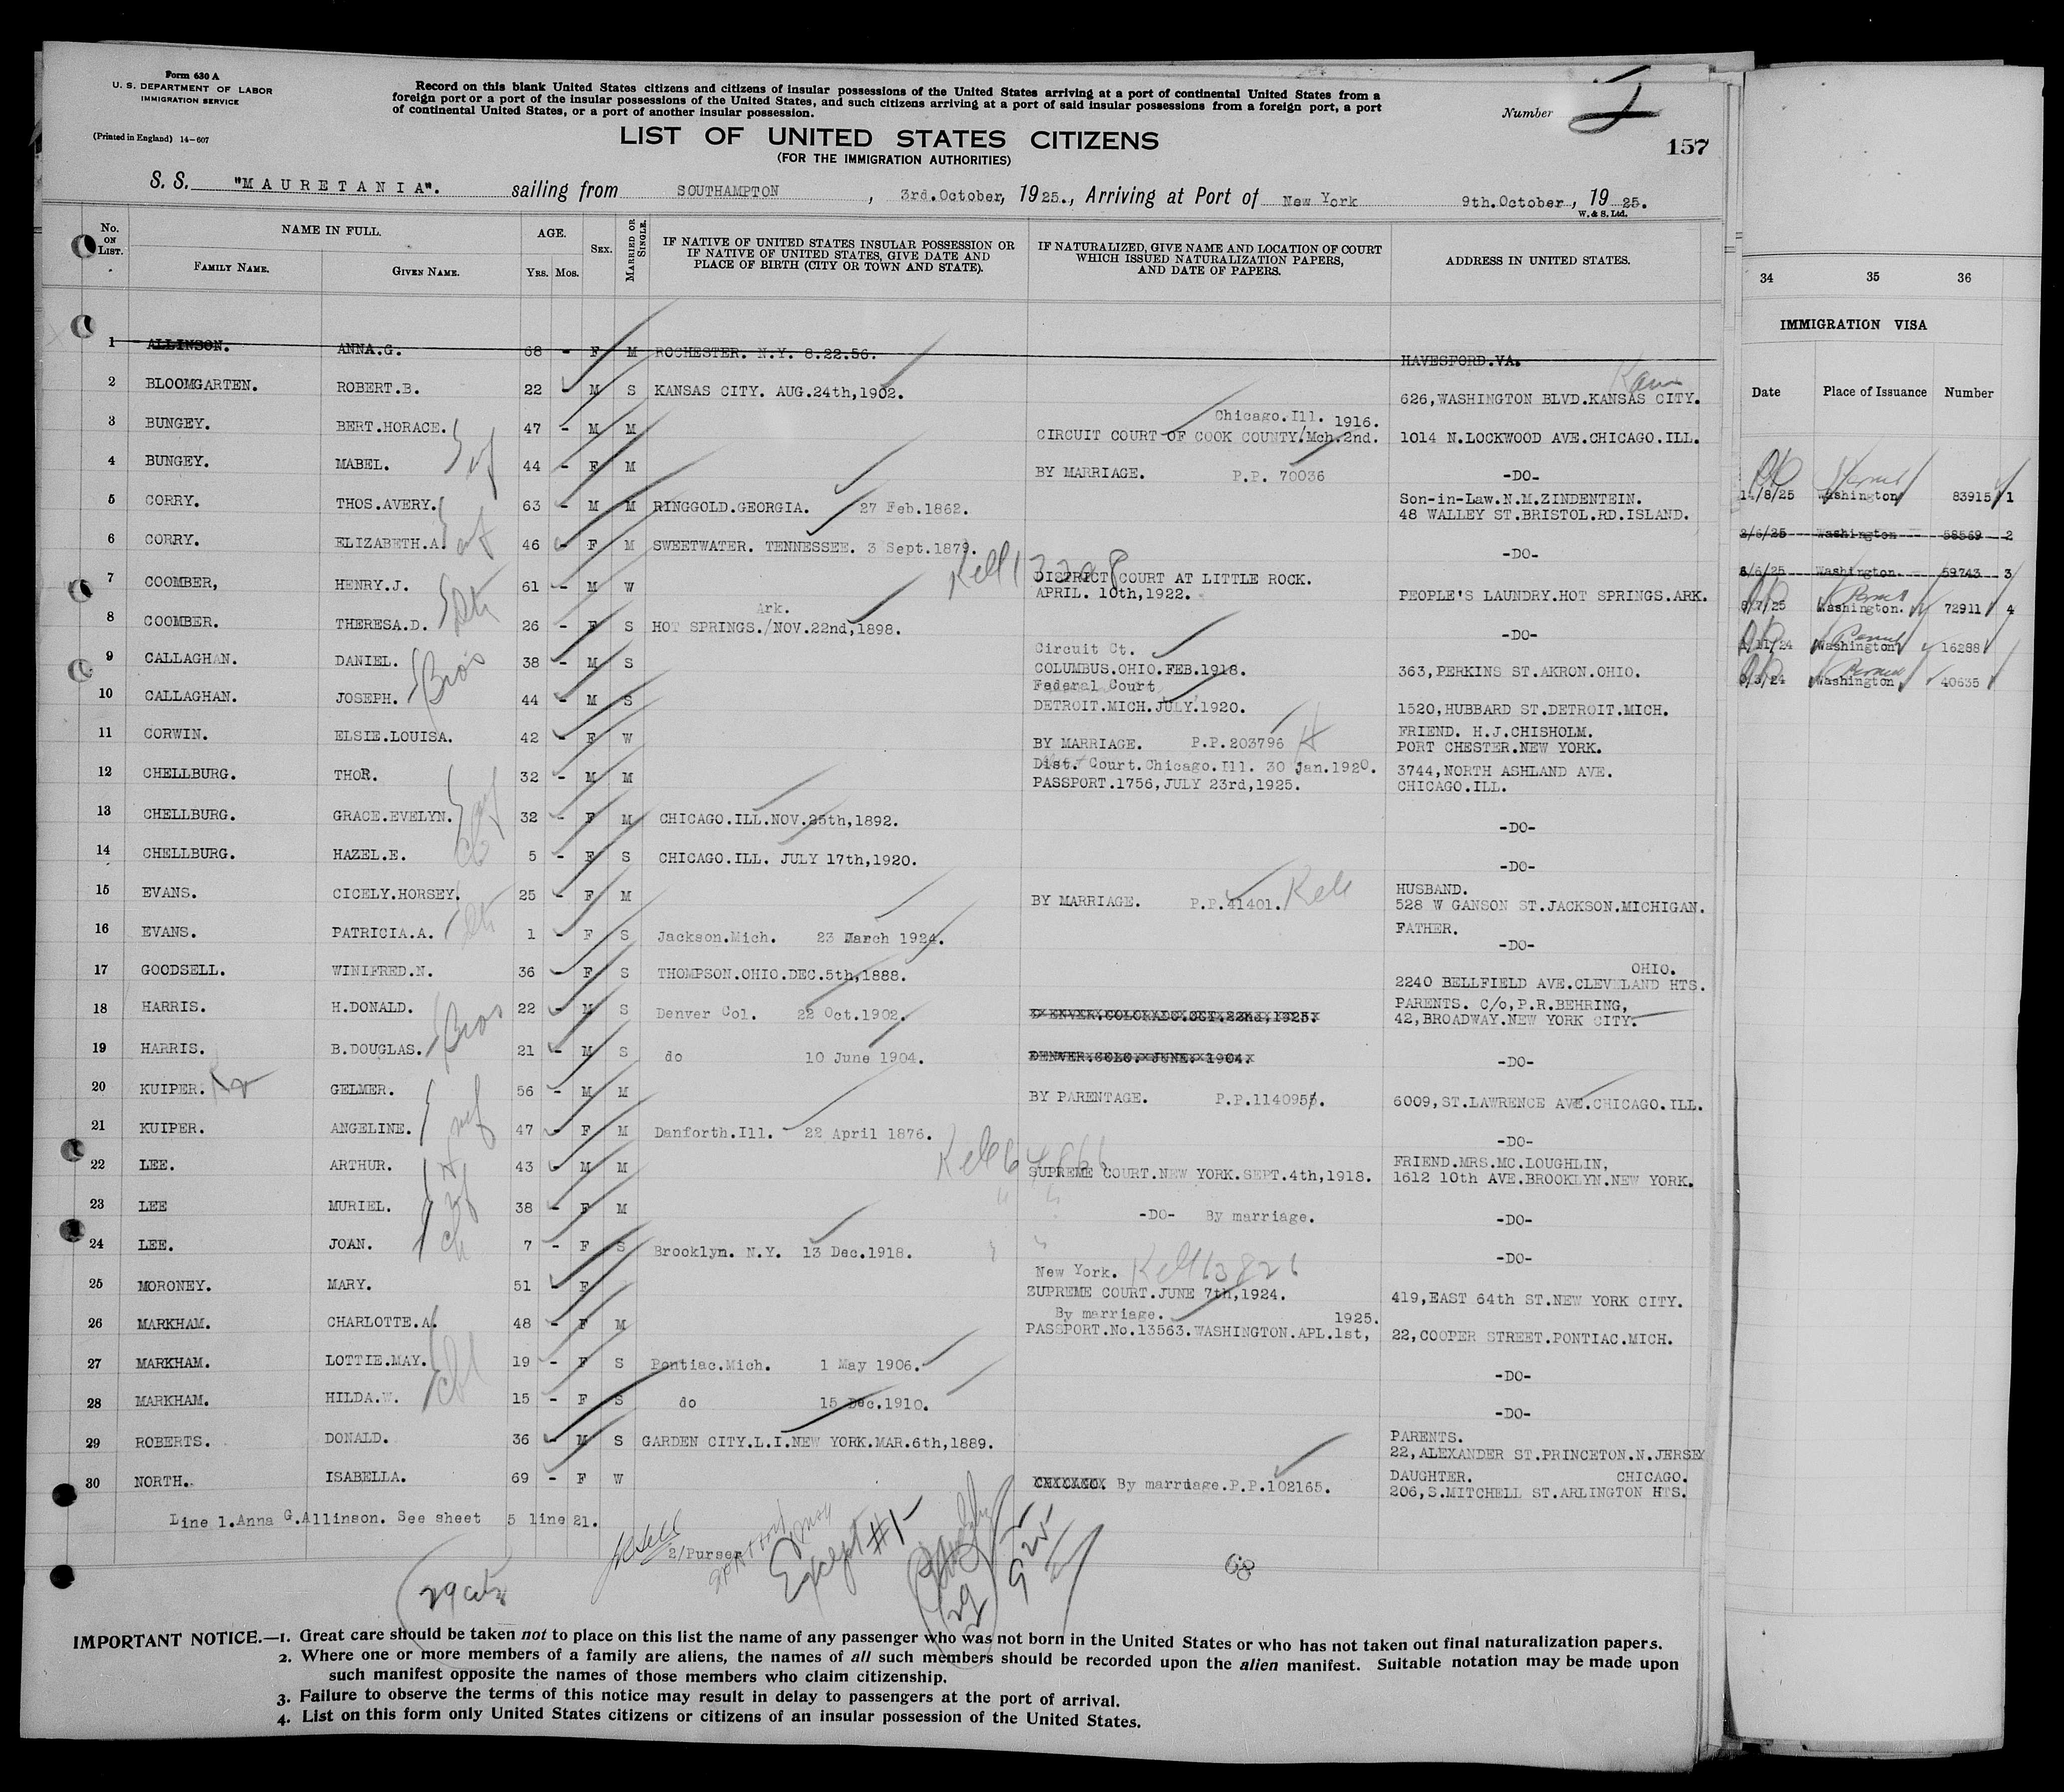 Form 630 A
U. S. DEPARTMENT OF LABOR
IMMIGRATION SERVICE
(Printed in England) 14-607
Record on this blank United States citizens and citizens of insular possessions of the United States arriving at a port of continental United States from a
foreign port or a port of the insular possessions of the United States, and such citizens arriving at a port of said insular possessions from a foreign port, a port
of continental United States, or a port of another insular possession.
Number
157
LIST OF UNITED STATES CITIZENS
(FOR THE IMMIGRATION AUTHORITIES)
S. S. "MAURETANIA". sailing from SOUTHAMPTON, 3rd.October, 1925., Arriving at Port of New York 9th.October, 1925.
W. & S. Ltd.
No. ON LIST. NAME IN FULL. AGE. SEX. MARRIED OR SINGLE. IF NATIVE OF UNITED STATES INSULAR POSSESSION OR IF NATIVE OF UNITED STATES, GIVE DATE AND PLACE OF BIRTH (CITY OR TOWN AND STATE). IF NATURALIZED, GIVE NAME AND LOCATION OF COURT WHICH ISSUED NATURALIZATION PAPERS, AND DATE OF PAPERS. ADDRESS IN UNITED STATES.
FAMILY NAME. GIVEN NAME. YRS. MOS.
1 ALLINSON. ANNA.G. 68 - F M ROCHESTER. N.Y. 8.22.56. HAVESFORD.VA.
2 BLOOMGARTEN. ROBERT.B. 22 - M S KANSAS CITY. AUG.24th,1902. 626,WASHINGTON BLVD.KANSAS CITY. Kan
3 BUNGEY. BERT.HORACE. 47 - M M Chicago.Ill. 1916.
CIRCUIT COURT OF COOK COUNTY/Mch.2nd. 1014 N.LOCKWOOD AVE.CHICAGO.ILL.
4 BUNGEY. MABEL. 44 - F M BY MARRIAGE. P.P. 70036 -DO-
5 CORRY. THOS.AVERY. 63 - M M RINGGOLD.GEORGIA. 27 Feb.1862. Son-in-Law.N.M.ZINDENTEIN.
48 WALLEY ST.BRISTOL.RD.ISLAND.
6 CORRY. ELIZABETH.A. 46 - F M SWEETWATER. TENNESSEE. 3 Sept.1879. -DO-
7 COOMBER, HENRY.J. 61 - M W DISTRICT COURT AT LITTLE ROCK.
APRIL. 10th,1922. PEOPLE'S LAUNDRY.HOT SPRINGS.ARK.
8 COOMBER. THERESA.D. 26 - F S Ark.
HOT SPRINGS./NOV.22nd,1898. -DO-
9 CALLAGHAN. DANIEL. 38 - M S Circuit Ct.
COLUMBUS.OHIO.FEB.1918. 363,PERKINS ST.AKRON.OHIO.
Bros
10 CALLAGHAN. JOSEPH. 44 - M S Federal Court
DETROIT.MICH.JULY.1920. 1520,HUBBARD ST.DETROIT.MICH.
11 CORWIN. ELSIE.LOUISA. 42 - F W BY MARRIAGE. P.P.203796 FRIEND. H.J.CHISHOLM.
PORT CHESTER.NEW YORK.
12 CHELLBURG. THOR. 32 - M M Dist. Court.Chicago.Ill. 30 Jan.1920.
PASSPORT.1756,JULY 23rd,1925. 3744,NORTH ASHLAND AVE.
CHICAGO.ILL.
13 CHELLBURG. GRACE.EVELYN. 32 - F M CHICAGO.ILL.NOV.25th,1892. -DO-
14 CHELLBURG. HAZEL.E. 5 - F S CHICAGO.ILL. JULY 17th,1920. -DO-
15 EVANS. CICELY.HORSEY. 25 - F M BY MARRIAGE. P.P.41401. HUSBAND.
528 W GANSON ST.JACKSON.MICHIGAN.
16 EVANS. PATRICIA.A. 1 - F S Jackson.Mich. 23 March 1924. FATHER.
-DO-
17 GOODSELL. WINIFRED.N. 36 - F S THOMPSON.OHIO.DEC.5th,1888. OHIO.
2240 BELLFIELD AVE.CLEVELAND HTS.
18 HARRIS. H.DONALD. 22 - M S Denver Col. 22 Oct.1902. DENVER.COLORADO.OCT.22nd,1925. PARENTS. C/o,P.R.BEHRING,
42,BROADWAY.NEW YORK CITY.
Bros
19 HARRIS. B.DOUGLAS. 21 - M S do 10 June 1904. DENVER.COLO. JUNE. 1904. -DO-
20 KUIPER. GELMER. 56 - M M BY PARENTAGE. P.P.114095. 6009,ST.LAWRENCE AVE.CHICAGO.ILL.
21 KUIPER. ANGELINE. 47 - F M Danforth.Ill. 22 April 1876. -DO-
22 LEE. ARTHUR. 43 - M M SUPREME COURT.NEW YORK.SEPT.4th,1918. FRIEND.MRS.MC.LOUGHLIN,
1612 10th AVE.BROOKLYN.NEW YORK.
23 LEE MURIEL. 38 - F M -DO- By marriage. -DO-
24 LEE. JOAN. 7 - F S Brooklyn. N.Y. 13 Dec.1918. -DO-
25 MORONEY. MARY. 51 - F New York.
ZUPREME COURT.JUNE 7th,1924. 419,EAST 64th ST.NEW YORK CITY.
26 MARKHAM. CHARLOTTE.A. 48 - F M By marriage. 1925.
PASSPORT.No.13563.WASHINGTON.APL.1st, 22,COOPER STREET.PONTIAC.MICH.
27 MARKHAM. LOTTIE.MAY. 19 - F S Pontiac.Mich. 1 May 1906. -DO-
28 MARKHAM. HILDA.W. 15 - F S do 15 Dec.1910. -DO-
29 ROBERTS. DONALD. 36 - M S GARDEN CITY.L.I.NEW YORK.MAR.6th,1889. PARENTS.
22,ALEXANDER ST.PRINCETON.N.JERSEY
30 NORTH. ISABELLA. 69 - F W CHICAGO. By marriage.P.P.102165. DAUGHTER. CHICAGO.
206,S.MITCHELL ST.ARLINGTON HTS.
Line 1.Anna G.Allinson. See sheet 5 line 21.
2/Purser
Except #1
29
68
IMPORTANT NOTICE.—1. Great care should be taken not to place on this list the name of any passenger who was not born in the United States or who has not taken out final naturalization papers.
2. Where one or more members of a family are aliens, the names of all such members should be recorded upon the alien manifest. Suitable notation may be made upon
such manifest opposite the names of those members who claim citizenship.
3. Failure to observe the terms of this notice may result in delay to passengers at the port of arrival.
4. List on this form only United States citizens or citizens of an insular possession of the United States.
34 35 36
IMMIGRATION VISA
Date Place of Issuance Number
/8/25 Washington 83915 1
2/6/25 Washington 58569 2
6/6/25 Washington 59743 3
/7/25 Washington. 72911 4
/11/24 Washington 16288
/24 Washington 40635